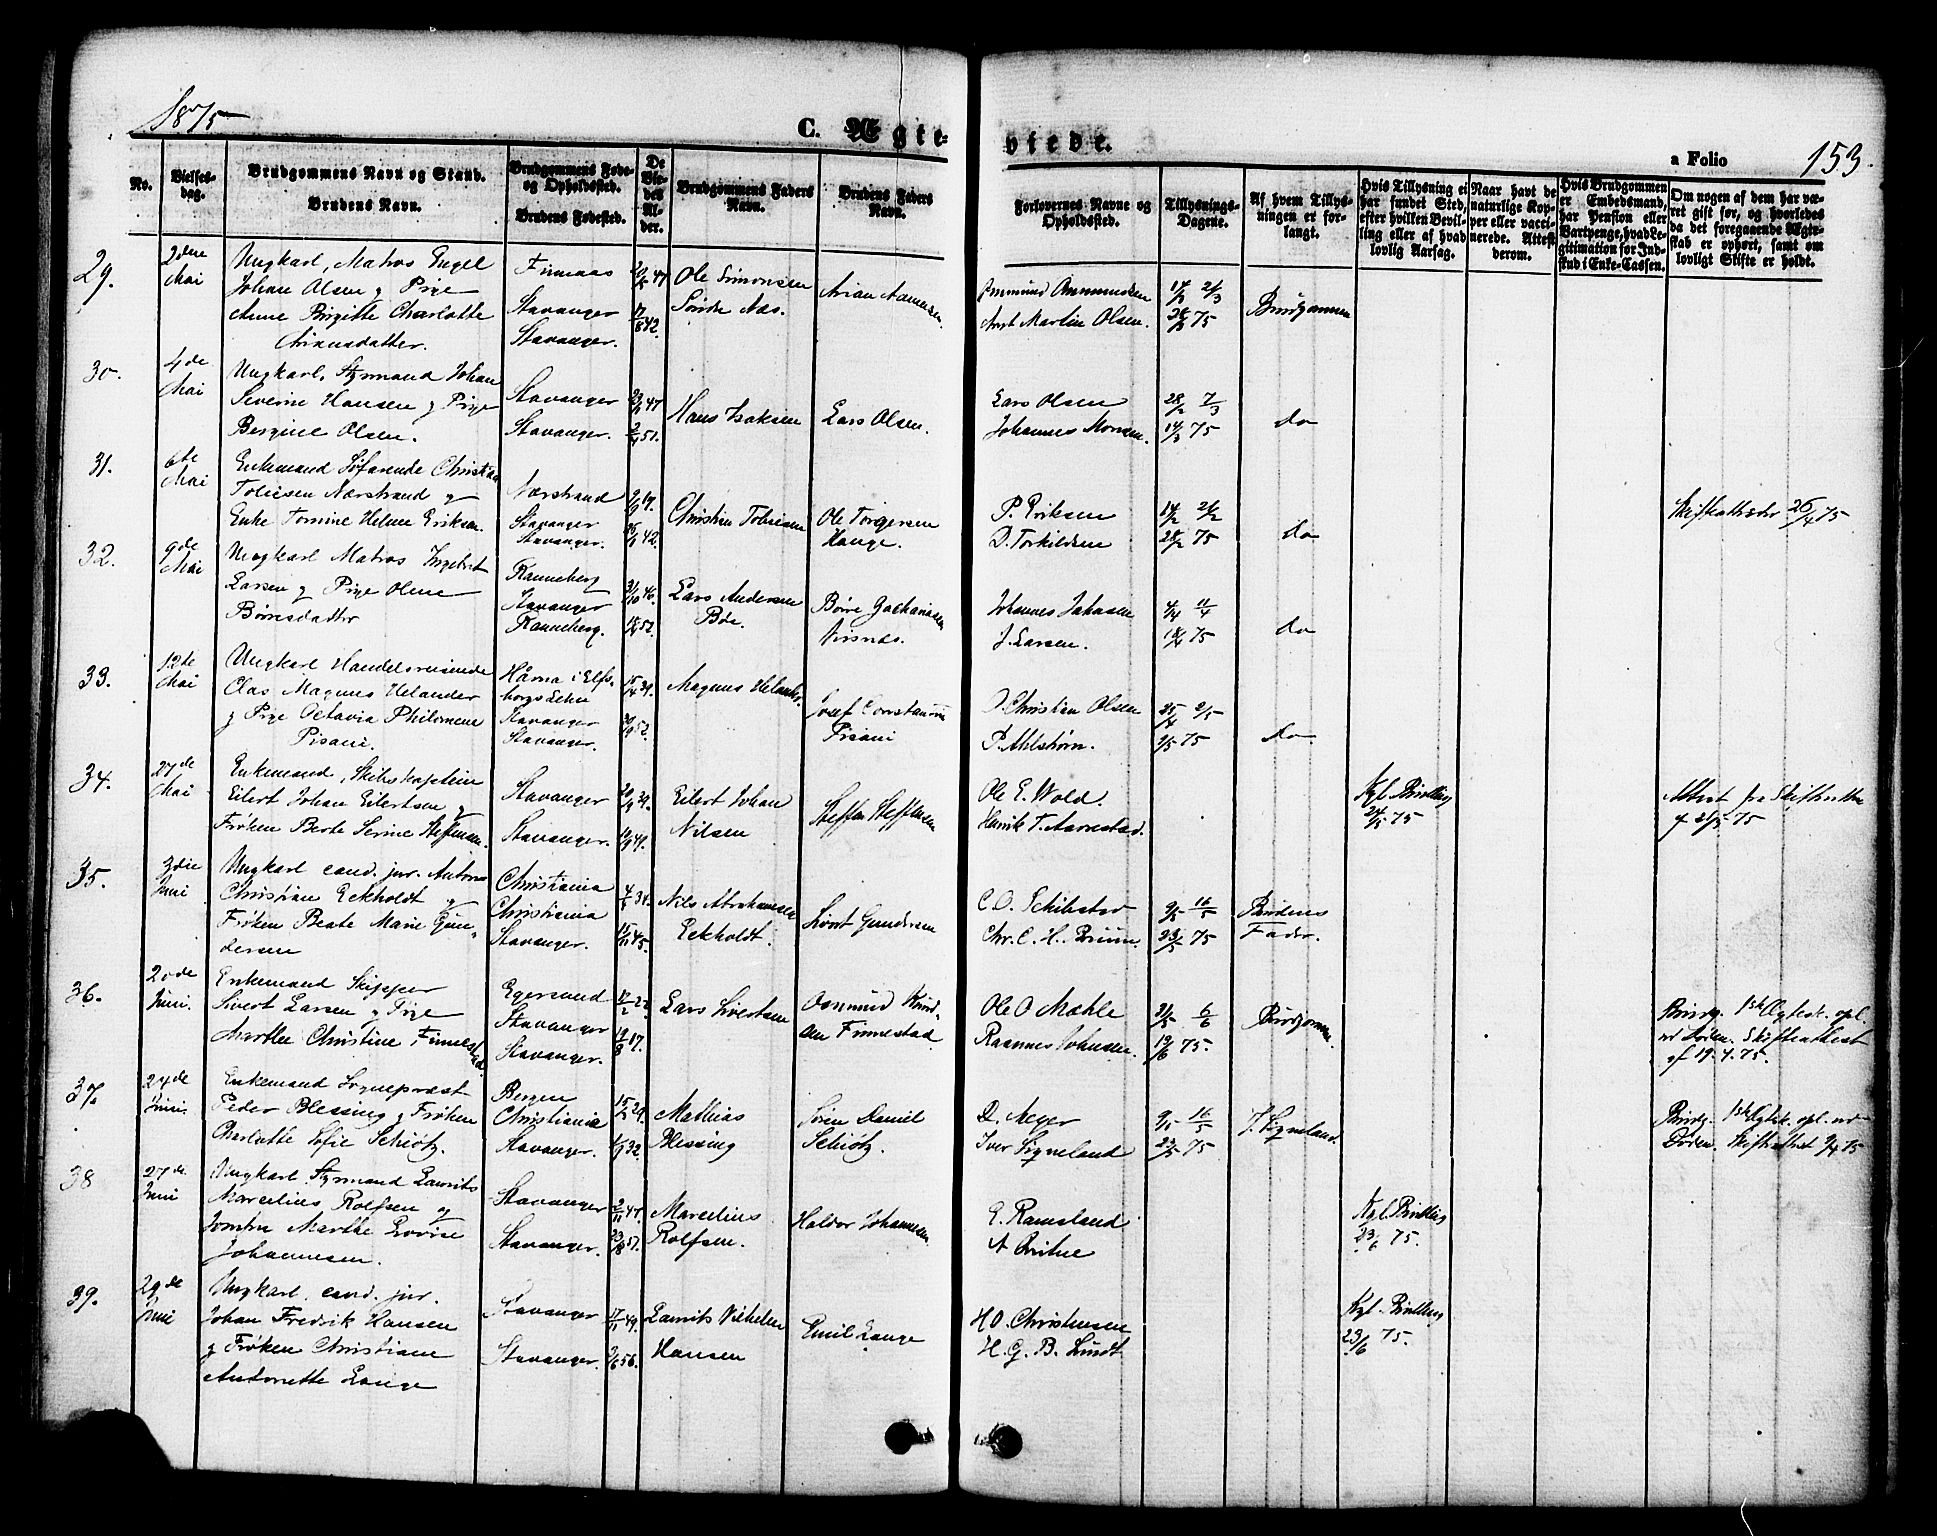 1875
C. Ægte-
viede.
a Folio
153.
No.
Vielses-
dag.
Brudgommens Navn og Stand.
Brudens Navn.
Brudgommens Føde-
og Opholdssted.
Brudens Fødested.
De
Vie-
des
Al-
der.
Brudgommens Faders
Navn.
Brudens Faders
Navn.
Forlovernes Navne og
Opholdssted.
Tillysnings-
Dagene.
Af hvem Tillys-
ningen er for-
langt.
Hvis Tillysning ei
har fundet Sted,
efter hvilken Bevil-
ling eller af hvad
lovlig Aarsag.
Naar havt de
naturlige Kop-
per eller vacci-
nerede. Attest
derom.
Hvis Brudgommen
er Embedsmand,
har Pension eller
Vartpenge, hvad Le-
gitimation for Ind-
skud i Enke-Cassen.
Om nogen af dem har væ-
ret gift før, og hvorledes
da det foregaaende Ægte-
skab er ophørt, samt om
lovligt Skifte er holdt.
29.
2den
Mai
Ungkarl, Matros Engel
Johan Olsen og Pige
Anne Birgitte Charlotte
Arianusdatter.
Stavanger
Stavanger.
17/8 42.
Ole Simonsen
Arian Aanensen.
Ommund Ommundsen
Martin Olsen.
Brudgommen
30.
4de
Mai
Ungkarl, Styrmand Johan
Severin Hansen og Pige
Bergine Olsen.
Stavanger
Stavanger.
Hans Isaksen
Lars Olsen.
Lars Olsen
Johannes Monsen.
28/2 7/3
14/3 75
do
31.
6te
Mai
Enkemand Søfarende Christian
Tobiesen Nærstrand og
Enke Tomine Helene Eriksen.
Nærstrand
Stavanger
Stavanger.
Christian Tobiesen
Ole Torgersen
Hauge.
P. Eriksen
D. Torkildsen
14/2 21/2
28/2 75
do
Skifteattest 26/4 75
32.
9de
Mai
Ungkarl Matros Ingebret
Larsen og Pige Oline
Børresdatter
Ranneberg
Stavanger
Ranneberg.
31/10 46.
Lars Andersen
Bøe.
Børre Zachariasen
Johannes Johnsen
J. Larsen.
4/4 11/4
18/4 75
do
33.
12te
Mai
Ungkarl Handelsreisende
Olas Magnus Helander
og Pige Octavia Philomene
Pisani.
Hårna i Elfs-
borgs Lehn
Stavanger
Stavanger.
15/4 39.
Magnus Helander.
Josef Constantin
Pisani
O. Christian Olsen
P. Ahlstrøm.
25/4 2/5
9/5 75
do
34.
27de
Mai
Enkemand, Skibskaptein
Eilert Johan Eilertsen og
Frøken Berte Serine Steffensen.
Stavanger
Stavanger.
Eilert Johan
Nilsen
Steffen Steffensen
Ole E. Wold.
Henrik T. Aarrestad.
Kgl. Bevilling
24/5 75
Attest fra Skifteretten
af 21/5 75
35.
3die
Juni
Ungkarl cand. jur. Anton
Christian Eckholdt og
Frøken Beate Marie Gun-
dersen
Christiania
Christiania
Stavanger.
15/11 45.
Nils Abrahamsen
Eckholdt.
Sivert Gundersen
C. O. Schibstad
Chr. C. H. Bruun.
9/5 16/5
23/5 75
Brudens
Fader.
36.
20de
Juni.
Enkemand Skipper
Sivert Larsen og Pige
Marthe Christine Finnestad.
Egersund
Stavanger
Stavanger.
Lars Sivertsen
Osmund Knud-
sen Finnestad
Ole O Mæhle
Rasmus Johnsen.
6/6
75.
Brudgommen.
Brudg. 1ste Ægtesk. opl.
ved Døden. Skifteattest
af 19.4.75.
37.
24de
Juni.
Enkemand Sognepræst
Peder Blessing og Frøken
Charlotte Sofie Schiøtz.
Bergen
Christiania
Stavanger.
Mathias
Blessing
Søren Daniel
Schiøtz.
D. Meyer
Iver Sigveland
9/5 16/5
23/5 75
I. Sigveland.
Brudg. 1ste Ægtesk. opl. ved
Døden. Skifteattest 9/4 75
38
27de
Juni
Ungkarl Styrmand Laurits
Marcelius Rolfsen og
Jomfru Marthe Lovise
Johannesen.
Stavanger
Stavanger.
2/11 47.
23/8 51.
Marcelius
Rolfsen.
Haldor Johannesen.
E. Ramsland
Kgl. Bevilling
23/6 75.
39.
29de
Juni
Ungkarl, cand. jur.
Johan Fredrik Hansen
og Frøken Christiane
Antonette Lange
Stavanger
Stavanger.
17/11 49.
56.
Laurits Vilhelm
Hansen
Emil Lange
H. O. Christensen
H. G. B. Sundt
Kgl. Bevilling
23/6 75.